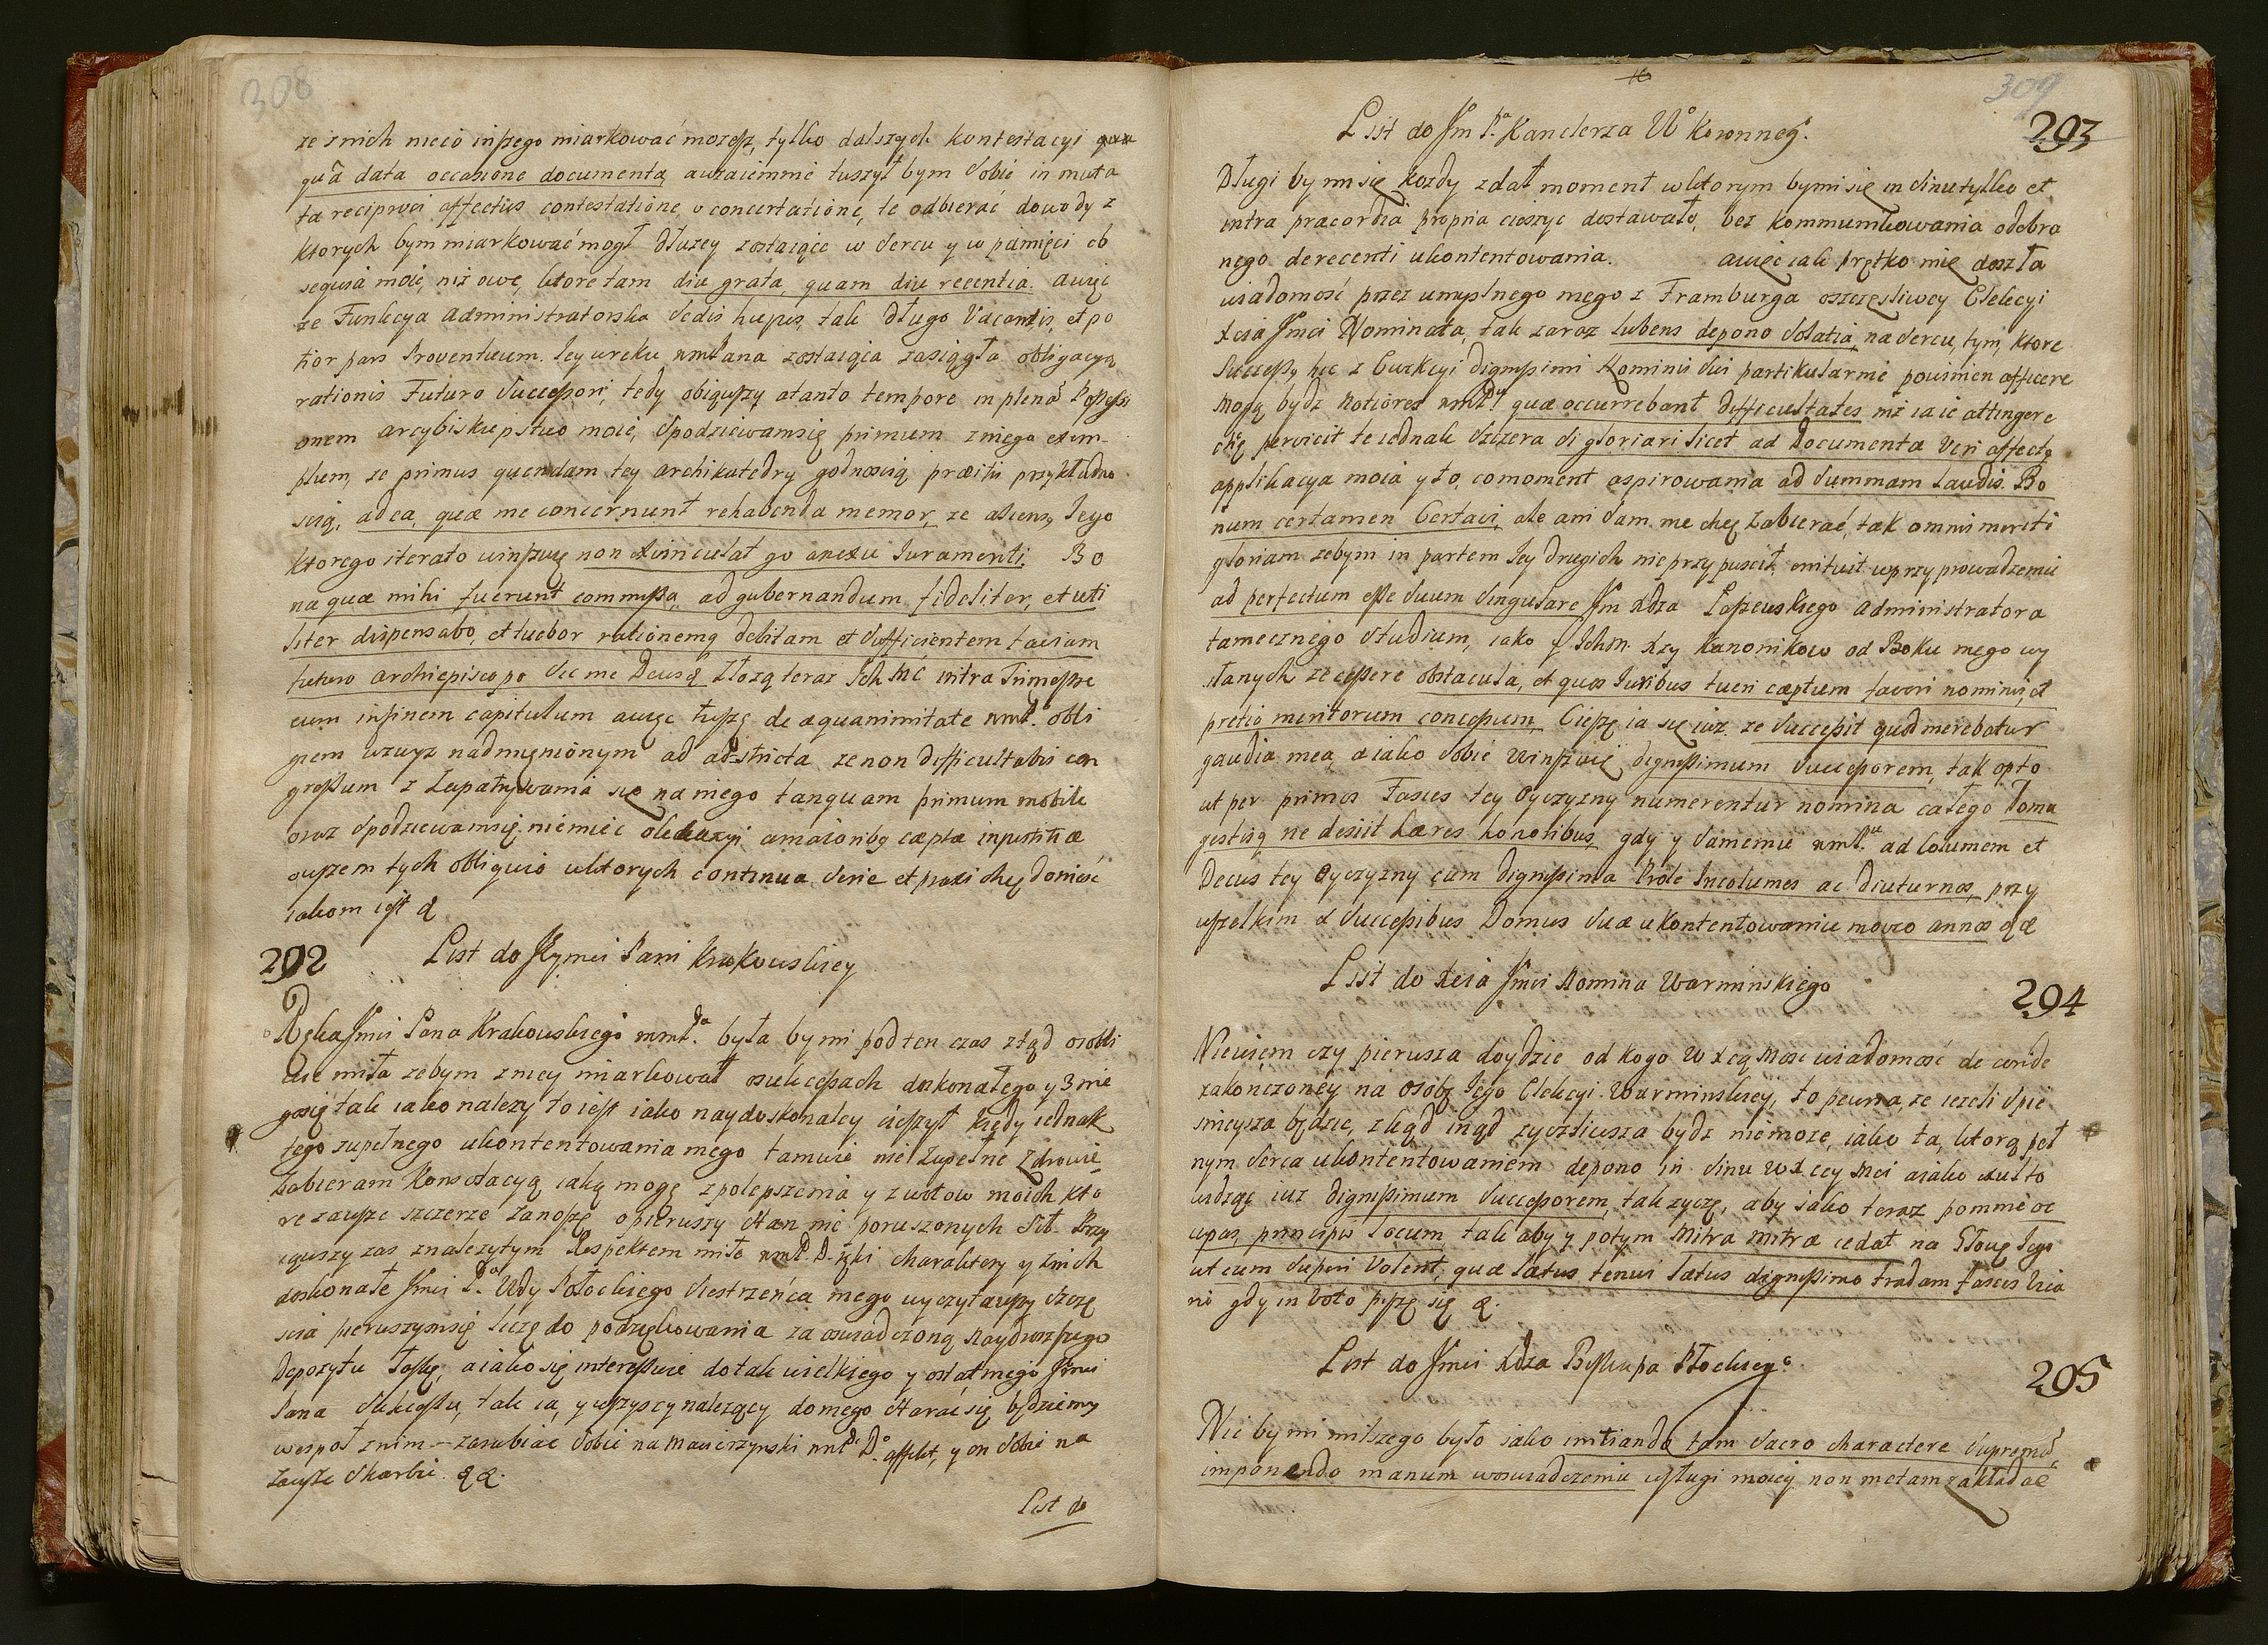 308
ze z nich nieco inszego miarkować mozesz, tylko dalszych kontestacyi
quã data occasione documenta, wzaiemnie tuszył bym sobie in muta
ta reciproci affectus contestatione, o concertatione, te odbierać dowody z
ktorych bym miarkować mogł dłuzey zostaiące w sercu y w pamięci ob
sequia moie, niz owe, ktore tam diu grata, quam diu recentia. a więc
ze Funkcya Administratorska Sedis huius, tak długo Vacantis, et po
tior pars Proventuum. Iey w ręku wmPana zostaiąca zasiągła obligacyą
rationis Futuro Successori, tedy obiąwszy a tanto tempore in plenã Possessi
onem arcybiskupstwo moie, spodziewam się primum z niego exem-
plum, ze primus quendam tey archikatedry godnością præitii przykładno
ścią, ad ea, quæ me concernunt rehabenda memor, ze
ktorego iterato winszuię non exvinculat go anexu Iuramenti. Bo
na quæ mihi fuerunt commissa, ad gubernandum fideliter, et uti
liter dispensabo, et tuebor rationemq debitam et sufficientem faciam
futuro archiepiscopo sic me Deus &
cum insinem capitulum a więc tuszę de æquanimitate wmP. obli
giem wzwyz nadmięnionym ad adstricta ze non difficultabis con
gressum z zapatrywania się na niego tanquam primum mobile
oraz spodziewam się niemieć okkazyi amaioribq cæptæ iniustitiæ
owszem tych obliguio w ktorych continua serie et praxi chcę donieść
iakom iest &
292 List do Jeymci Pani Krakowskiey
Ręka Jmci Pana Krakowskiego wmP. była by mi pod ten czas ztąd osobli
wie miła zebym z niey miarkował o sukcessach doskonałego y z nie
go się tak iako nalezy to iest iako naydoskonaley cieszył kiedy iednak
tego zupełnego ukontentowania mego tamuie nie zupełne zdrowie
zabieram konsolacyą iaką mogę z polepszenia y z wotow moich kto
re zawsze szczerze zanoszę o pierwszy stan nie poruszonych sił. Przy
iąwszy zas znalezytym Respektem miłe wmP. D. ręki charaktery y z nich
doskonałe Jmci Pa Wdy Potockiego siestrzeńca mego wyczytawszy szczę
scia pierwszym się liczę do podziękowania za oswiadczoną naydrozszego
Depozytu łaskę, a iako się interessuie do tak wielkiego y ostatniego Jmci
Pana sukcessu, tak ia, y wszyscy nalezący do mego starać się będziemy
wespoł z nim zarabiać sobie na macierzynski wmP. Do. affekt, y on sobie na
zawsze skarbi. &&.
List do

309
List do Jm Pa. Kanclerza Wo Koronneg.
293
Długi by mi się kozdy zdał moment w ktorym bym się in sinu tylko et
intra præcordia propria cieszyc dostawało, bez kommunikowania odebra
nego de recenti ukontentowania. a więc iak prętko mię doszła
wiadomość przez umyslnego mego z Framburga oszczęsliwey Elekcyi
Xcia Jmci Nominata, tak zaraz lubens depono solatia, na sercu, tym, ktore
sukcessy hęc z Elekcyi dignissimi Nominis sui partikularnie powinien afficere
Mogą bydz notiores wmPu quæ occurrebant difficultates niz ia ie attingere
chcę pervicit te iednak szczera si gloriari licet ad Documenta Veri affectq
applikacya moia y to, co moment aspirowania ad summam laudis. Bo
num certamen Certavi, ale ani sam me chcę zabierać, tak omni meriti
gloriam zebym in partem Iey drugich nie przypuscił, enituit w przyprowadzeniu
ad perfectum esse suum singulare Jm Xdza Łaszewskiego Administratora
tamecznego studium, iako y Ichm. Xzy Kanonikow od Boku mego wy
słanych ze cessere obstacula, et quos Iuribus tueri cæptum favori nominis, et
pretio meritorum concessum, Cieszę ia się iuz, ze successit quod merebatur
gaudia mea, a iako sobie winszuię dignissimum successorem, tak opto
ut per primos Fasces tey Oyczyzny numerentur nomina całego domu
gestisq ne desiit hæres honoribus, gdy y samemu wmP. ad Columem et
Decus tey Oyczyzny cum dignissima Prole Incolumes ac diuturnos, przy
wszelkim & Successibus Domus suæ ukontentowaniu moveo annos &&
List do Xcia Jmci Nomina Warminskiego
294
Niewiem czy pierwsza doydzie od kogo W Xcą Mosc wiadomość de
zakończoney na osobę Iego Elekcyi Warminskiey, to pewna, ze iezeli spie
sznieysza będzie, zkąd inąd zyczliwsza bydz niemoze, iako ta, ktorą peł
nym serca ukontentowaniem depono in sinu W X cey Mci a iako
widzęc iuz dignissimum successorem, tak zyczę, aby iako teraz po mnie oc
cupas, principis locum, tak aby y potym Mitra mitræ cedat na Głowę Iego
ut cum superi volent, quæ lætus tenui lætus dignissimo tradam fasces
ni gdy in voto piszę się &.
List do Jmci Xdza Biskupa Płockiego.
295
Nic by mi milszego było iako initiando tam sacro charactere supremã,
imponendo manum w oswiadczeniu usługi moiey non metam zakładać